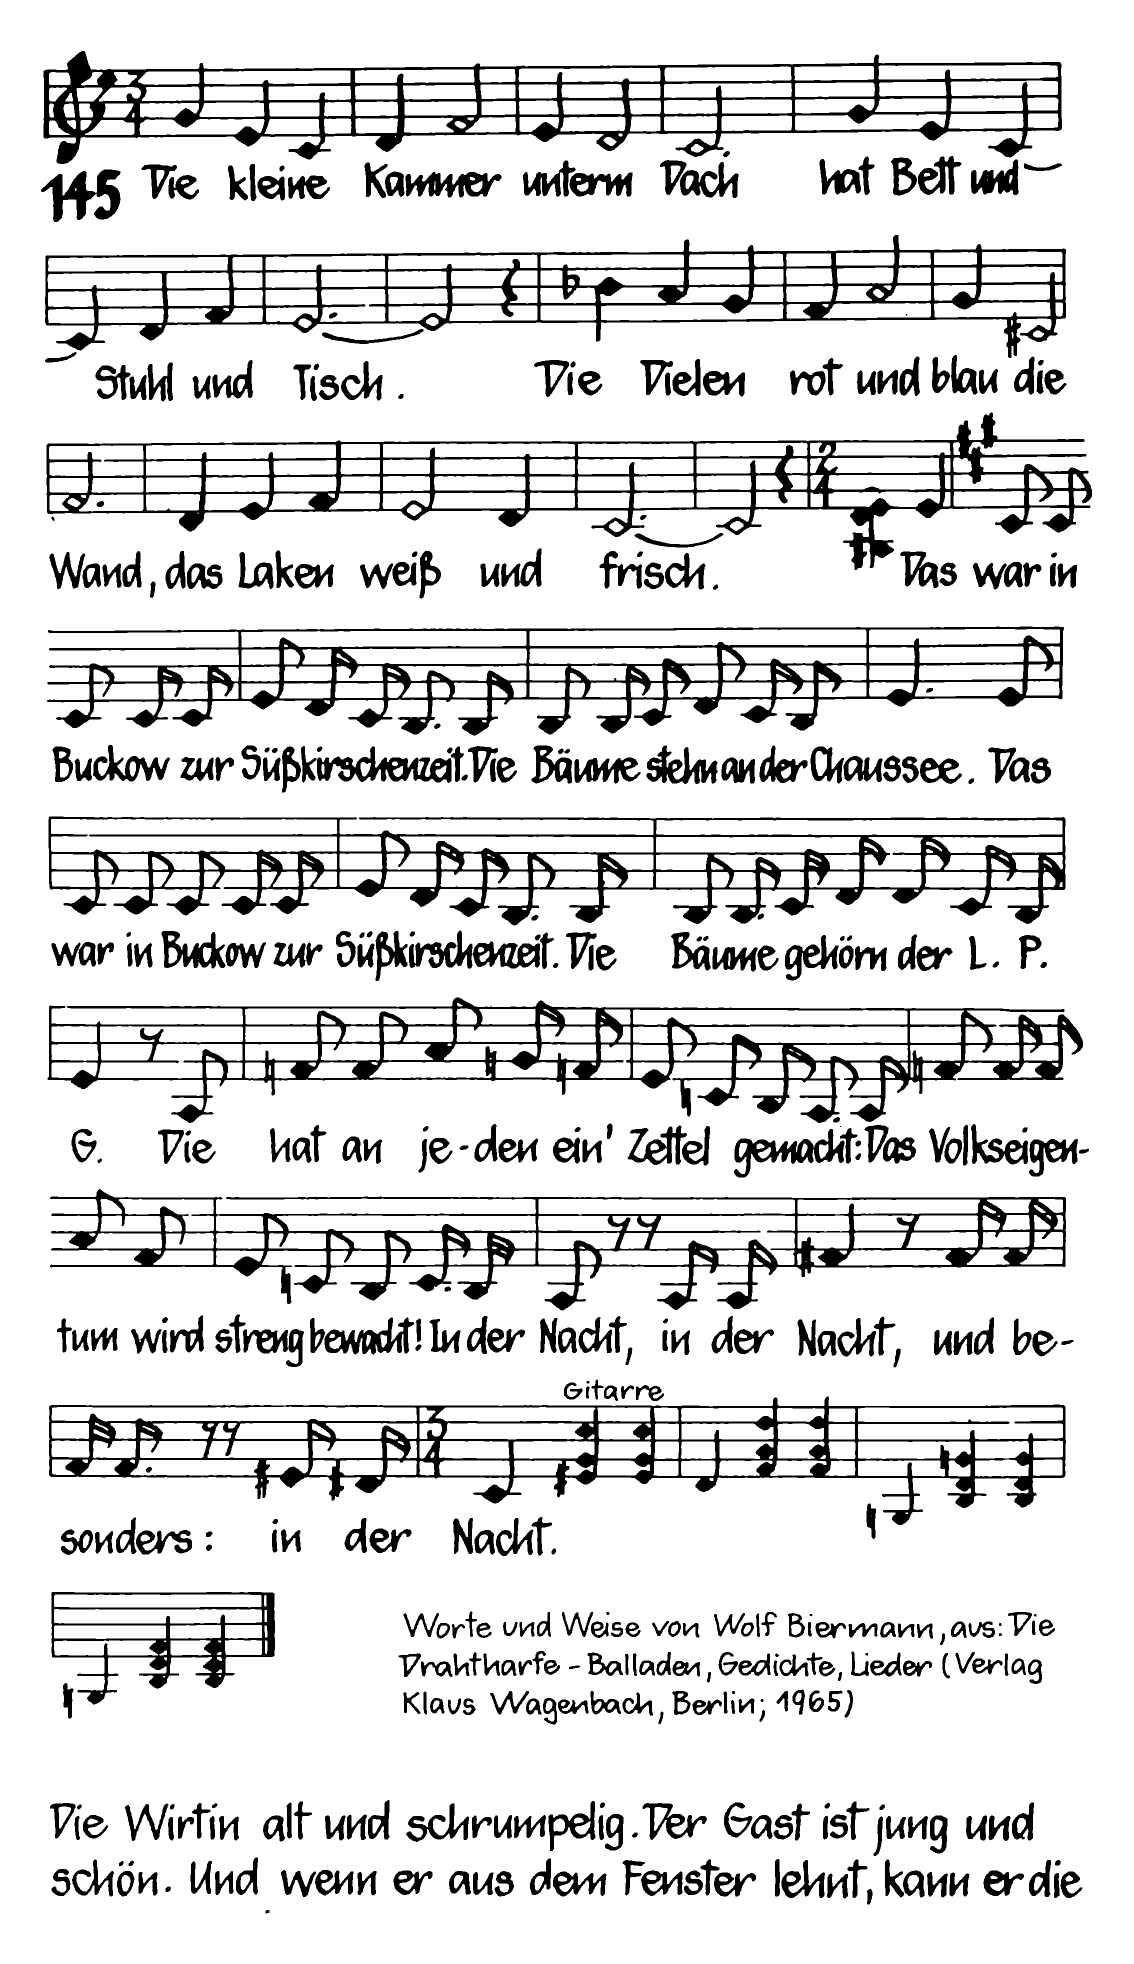 3
4
145 Die kleine Kammer unterm Dach hat Bett und
Stuhl und Tisch. Die Dielen rot und blau die
2
4
Wand, das Laken weiß und frisch. Das war in
Buckow zur Süßkirschenzeit. Die Bäume stehn an der Chaussee. Das
war in Buckow zur Süßkirschenzeit. Die Bäume gehörn der L. P.
G. Die hat an je-den ein' Zettel gemacht: Das Volkseigen-
tum wird streng bewacht! In der Nacht, in der Nacht, und be-
Gitarre
3
4
sonders: in der Nacht.
Worte und Weise von Wolf Biermann, aus: Die
Drahtharfe - Balladen, Gedichte, Lieder (Verlag
Klaus Wagenbach, Berlin; 1965)
Die Wirtin alt und schrumpelig. Der Gast ist jung und
schön. Und wenn er aus dem Fenster lehnt, kann er die